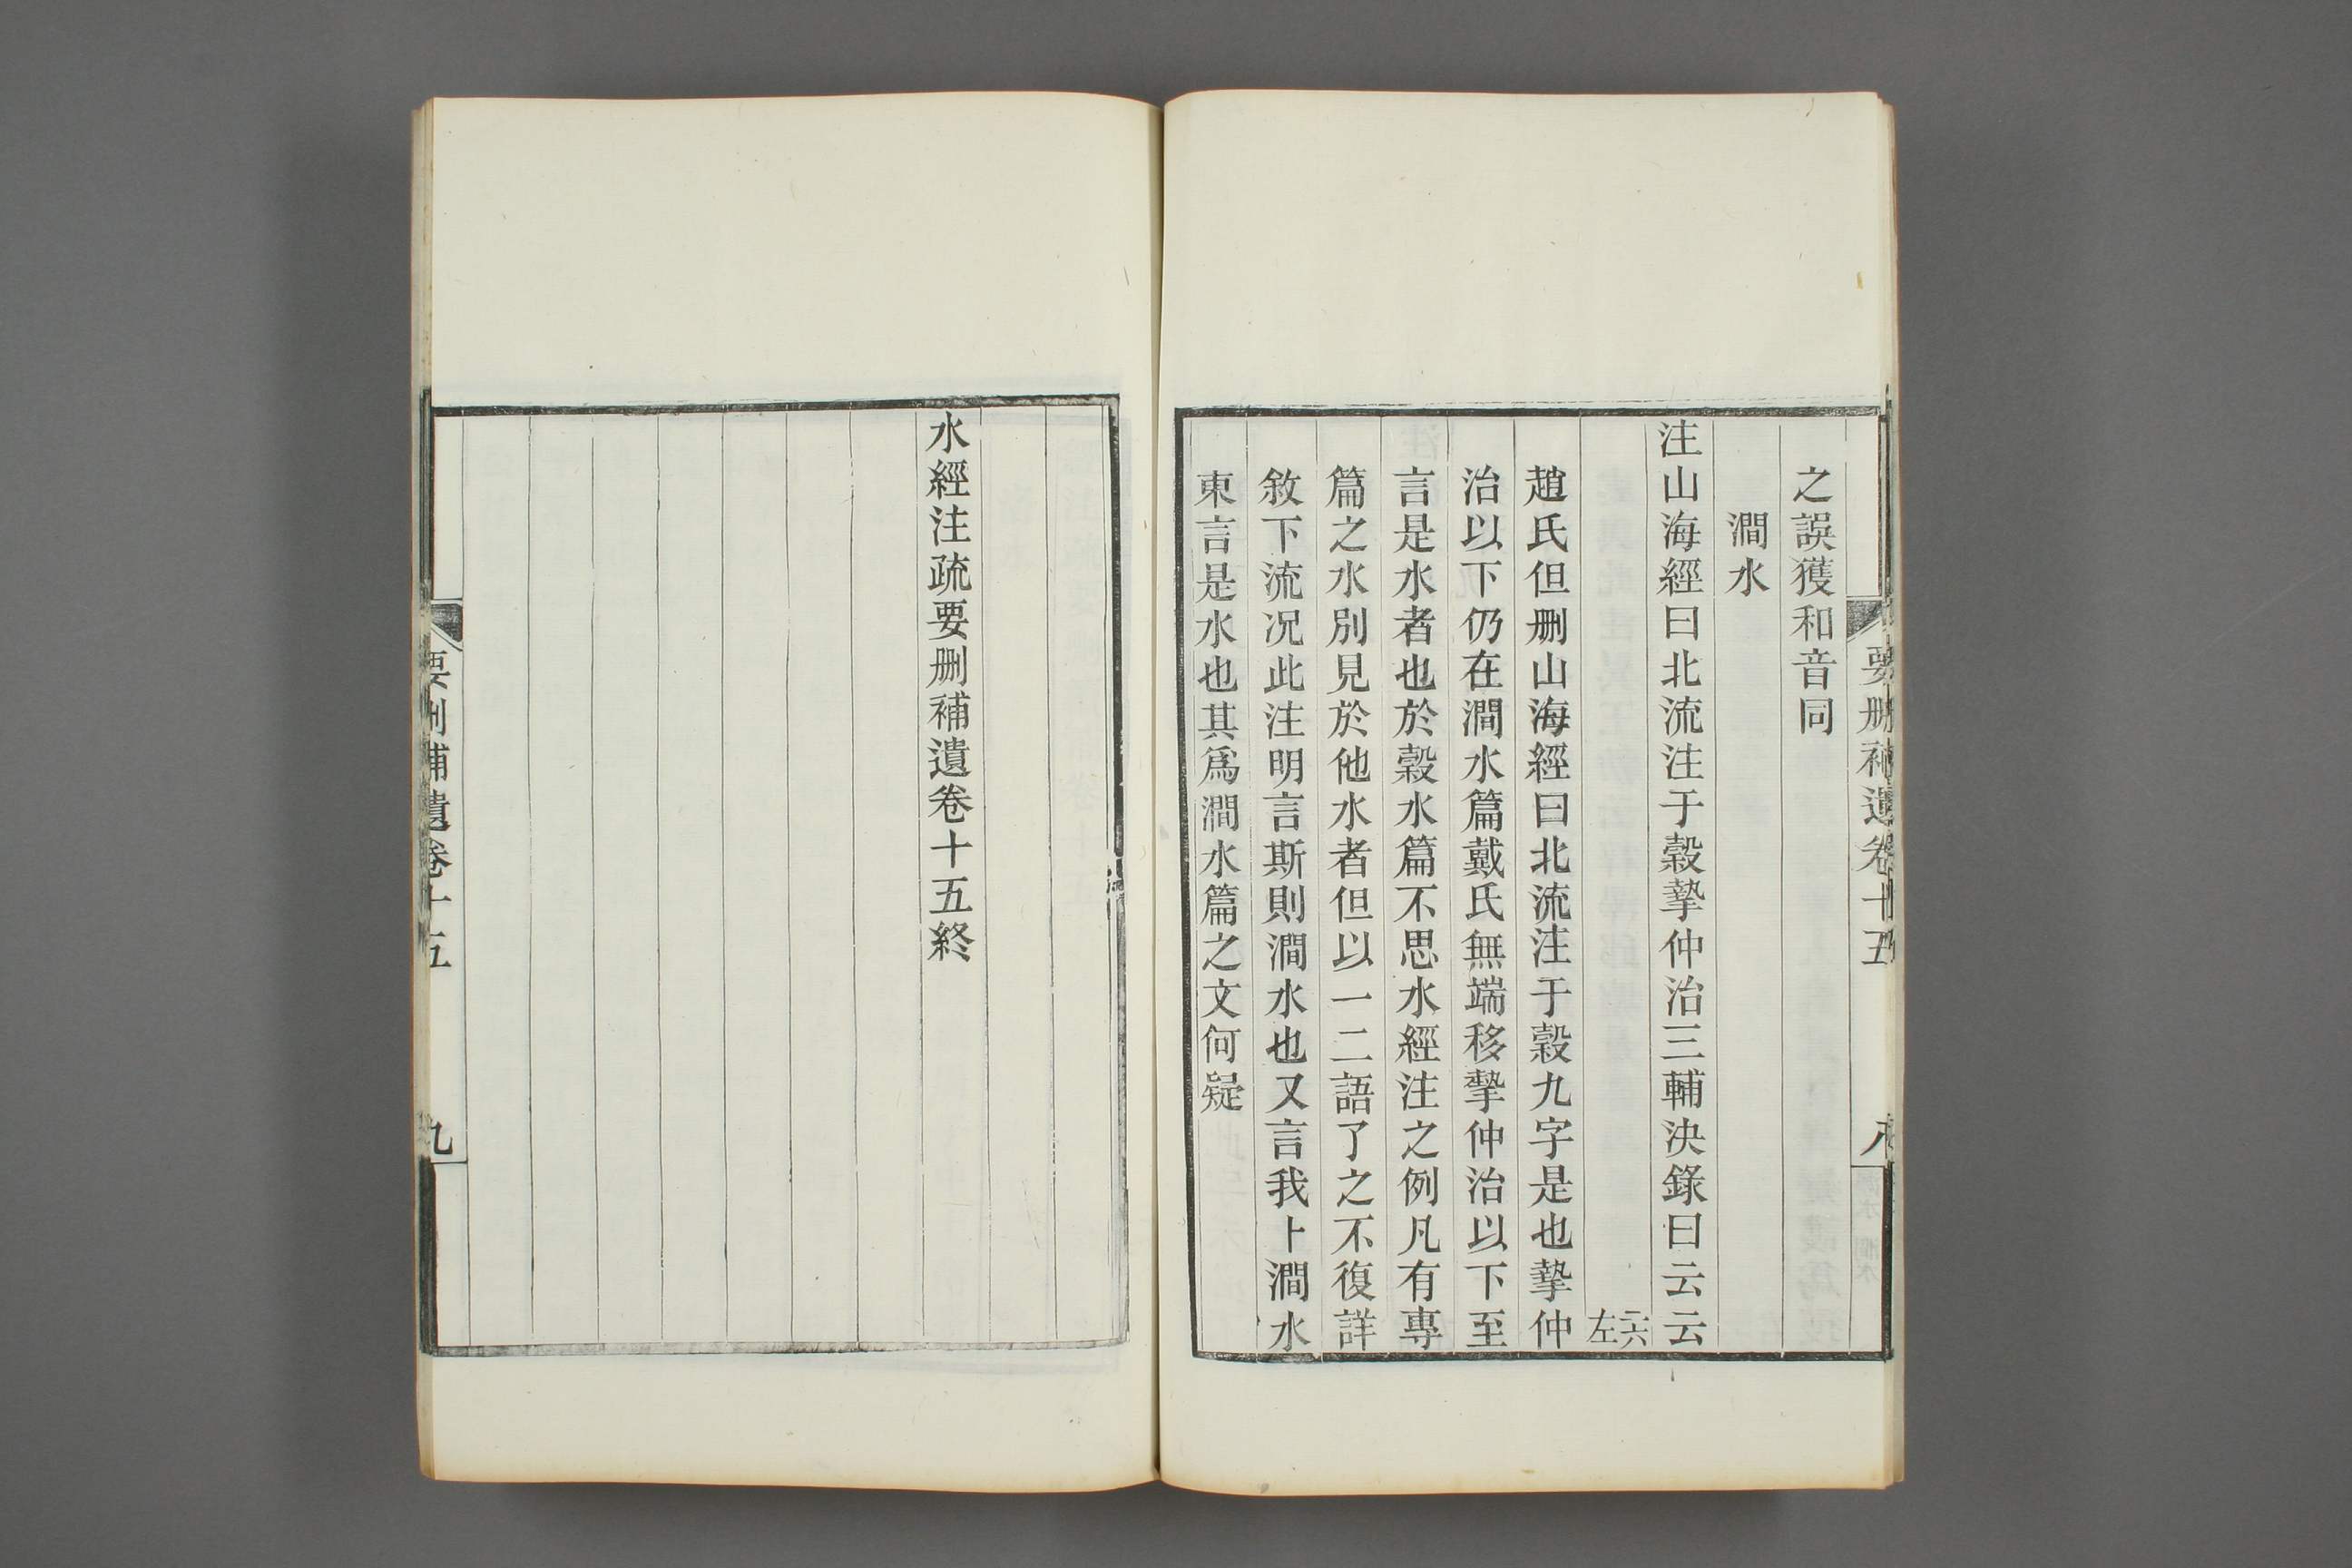 要删補遺卷十五
八
之誤獲和音同
澗水
注山海經曰北流注于穀摯仲治三輔決錄曰云云
二六
左
趙氏但删山海經曰北流注于穀九字是也摯仲
治以下仍在澗水篇戴氏無端移摯仲治以下至
言是水者也於穀水篇不思水經注之例凡有專
篇之水別見於他水者但以一二語了之不復詳
敘下流况此注明言斯則澗水也又言我卜澗水
東言是水也其爲澗水篇之文何疑
水經注疏要删補遺卷十五終
要删補遺卷十五
九